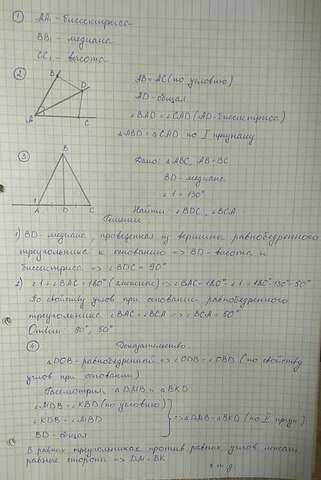 1 AA₁ - биссектриса
BB₁ - медиана
CC₁ - высота
2 B D A C
AB = AC (по условию)
AD - общая
∠BAD = ∠CAD (AD - биссектриса)
△ABD = △CAD по I признаку
3 B 1 A D C
Дано: △ABC, AB = BC
BD - медиана
∠1 = 130°
Найти: ∠BDC, ∠BCA
Решение
1) BD - медиана, проведенная из вершины равнобедренного
треугольника к основанию => BD - высота и
биссектриса => ∠BDC = 90°
2) ∠1 + ∠BAC = 180° (смежные) => ∠BAC = 180° - ∠1 = 180°-130°= 50°
По свойству углов при основании равнобедренного
треугольника ∠BAC = ∠BCA => ∠BCA = 50°
Ответ: 90°, 50°
4 Доказательство
△DOB - равнобедренный => ∠ODB = ∠OBD (по свойству
углов при основании)
Рассмотрим △DMB и △BKD
∠MDB = ∠KBD (по условию)
∠KDB = ∠MBD
BD - общая
=> △DMB = △BKD (по II призн)
В равных треугольниках против равных углов лежат
равные стороны => DM = BK
ч.т.д.